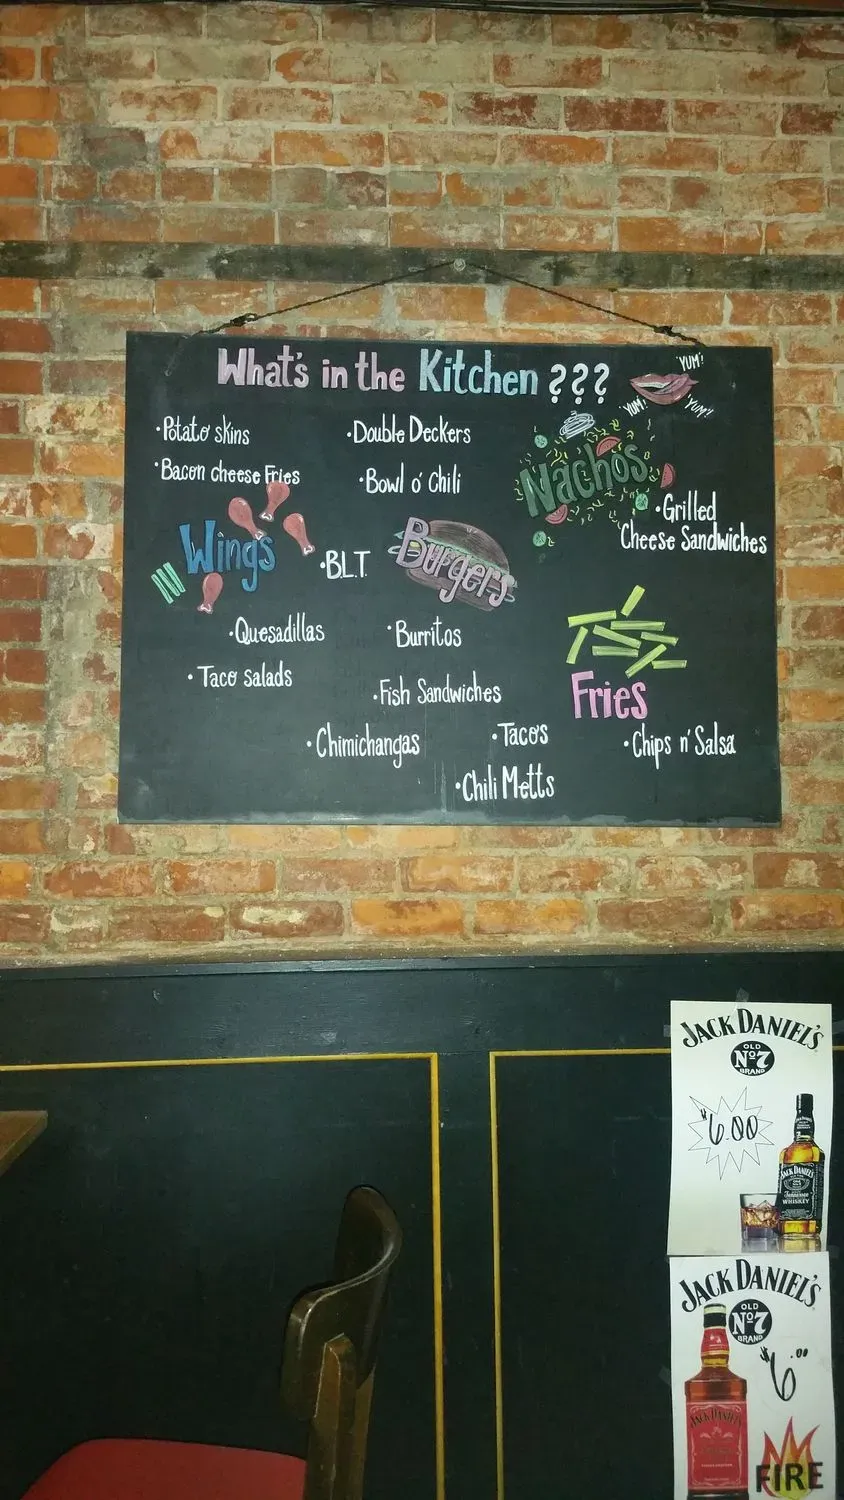 What's in the Kitchen ???
YUM!
YUM!
YUM!!
•Potato skins
•Bacon cheese Fries
•Double Deckers
•Bowl o' Chili
Nachos
•Grilled
Cheese Sandwiches
Wings
•B.L.T.
Burgers
•Quesadillas
•Taco salads
•Burritos
•Fish Sandwiches
Fries
•Chimichangas
•Tacos
•Chips n' Salsa
•Chili Metts
JACK DANIEL'S
OLD
No 7
BRAND
$6.00
JACK DANIEL'S
Tennessee
WHISKEY
JACK DANIEL'S
OLD
No 7
BRAND
$6.00
JACK DANIEL'S
FIRE